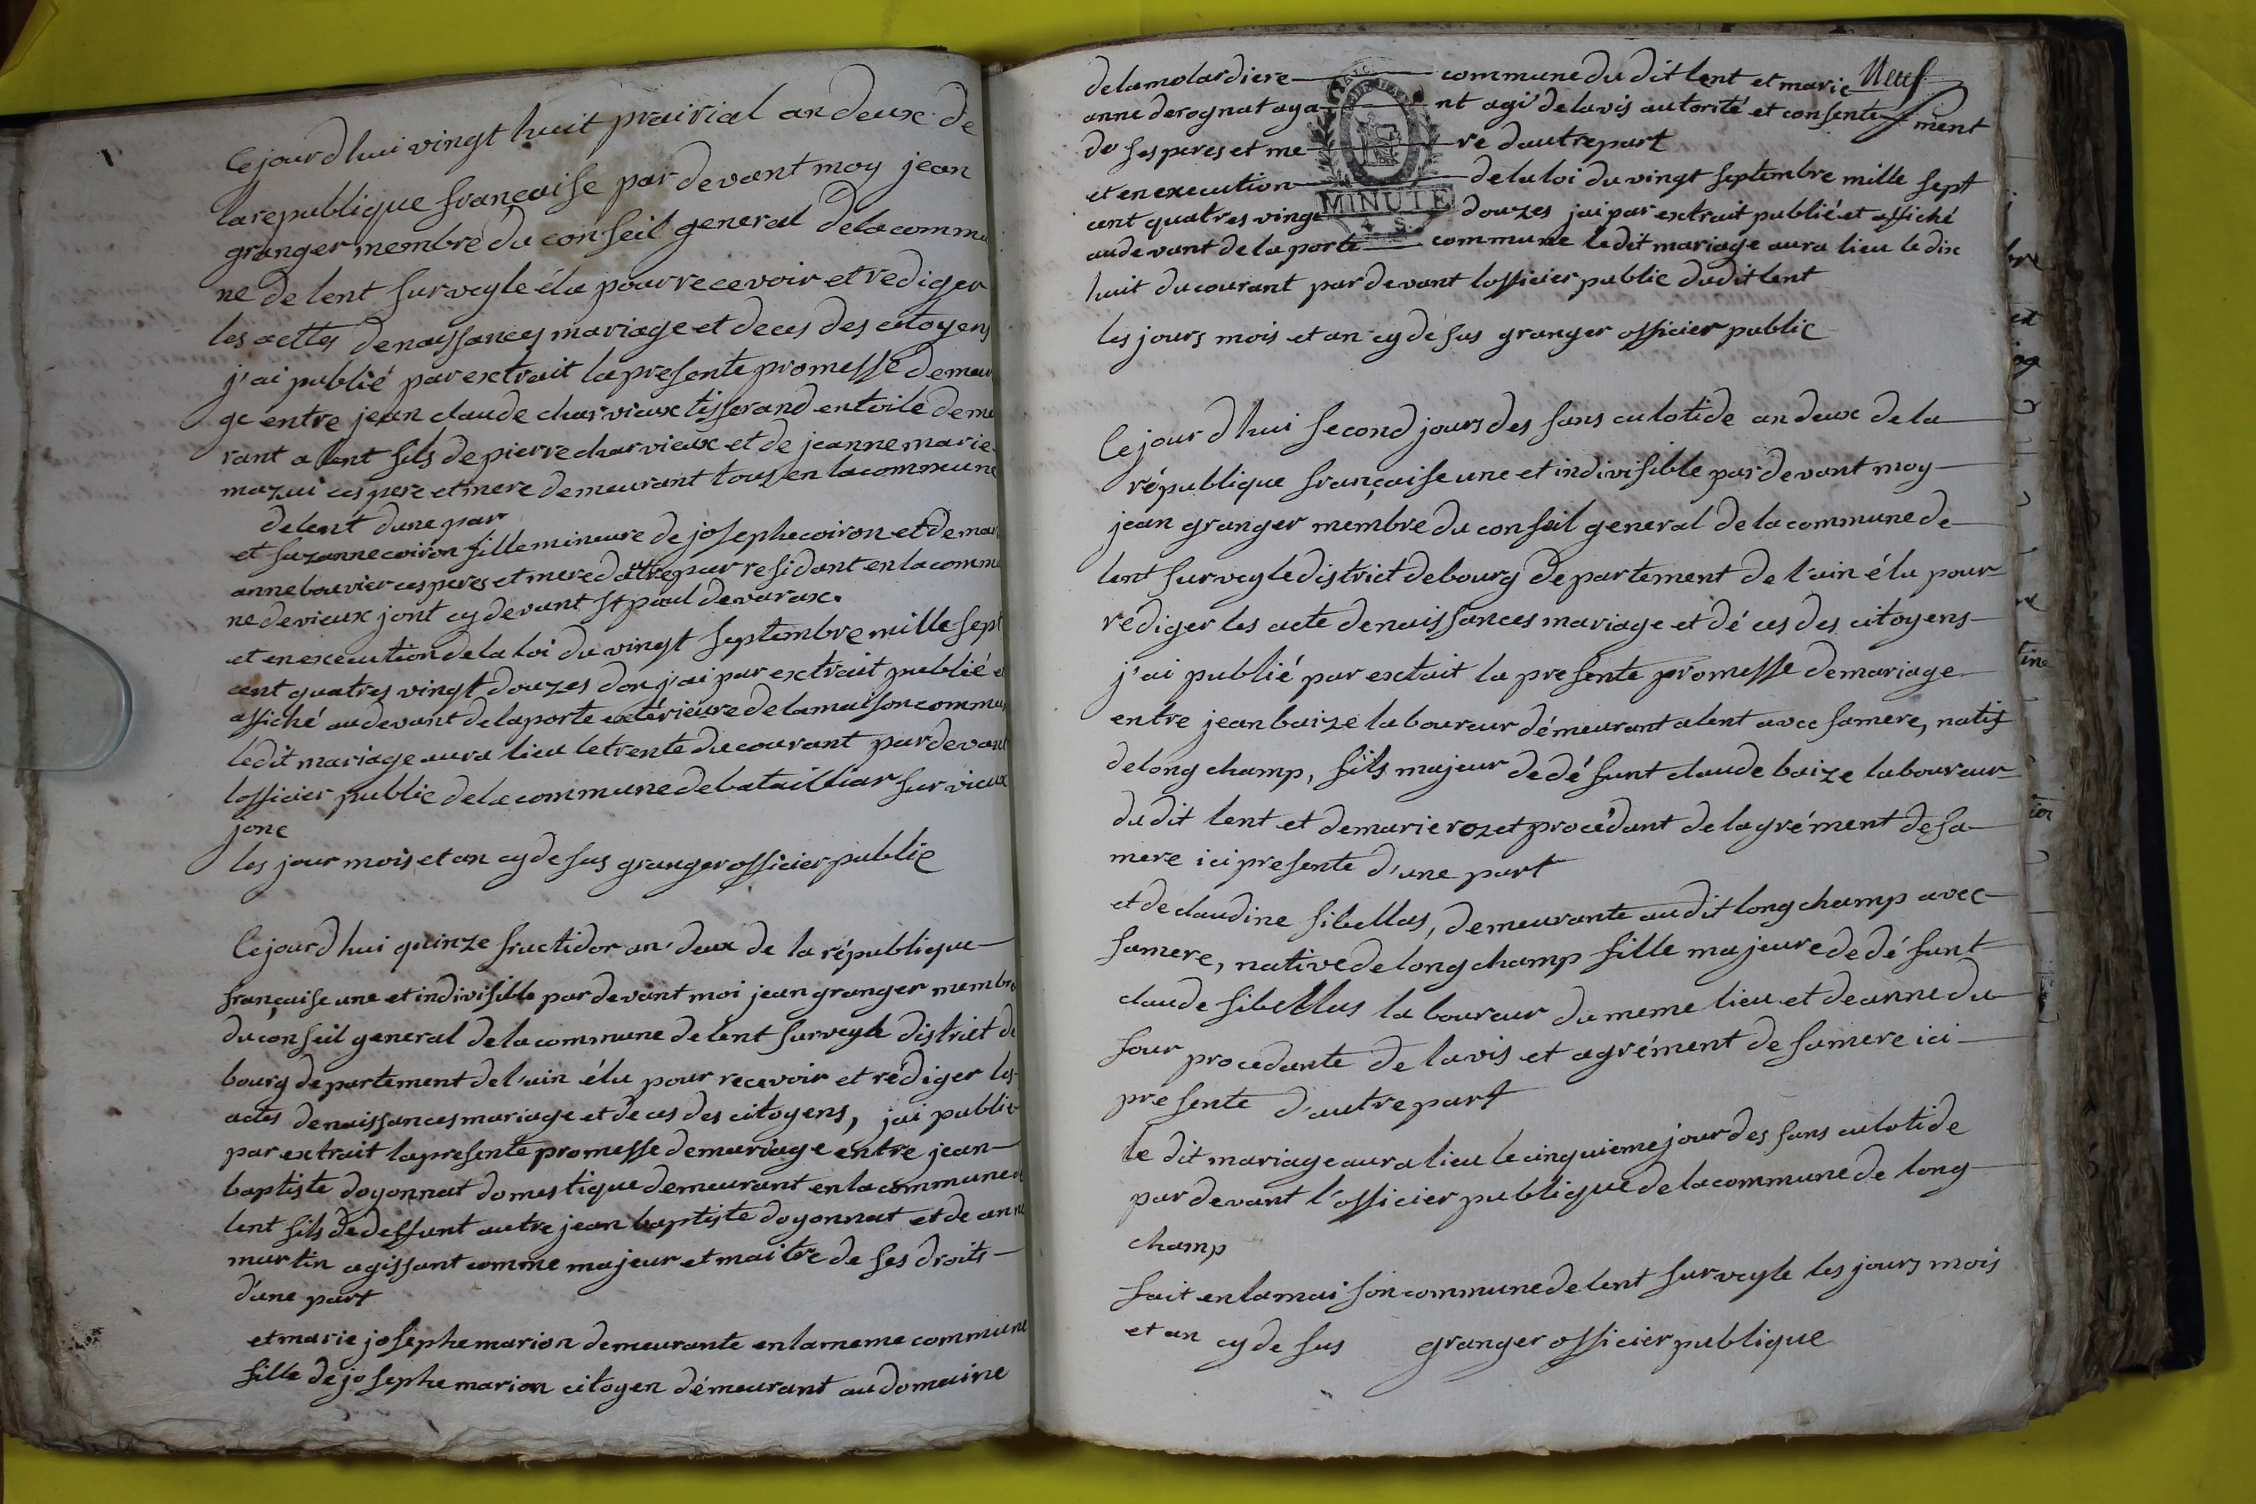 Cejourdhui vingt huit prairial an deux de
la republique françaisse par devant moy jean
granger membre du conseil general de la commu
ne de lent sur veyle élu pour recevoir et rediger
les acttes de naissances mariage et deces des citoyens
j'ai publié par extrait la presente promesse de maria
ge entre jean claude charvieux tisserand en toile deme
rant a lent fils de pierre charvieux et de jeanne marie
mazui ces pere et mere demeurant tous en la commune
de lent dune par
et suzanne coiron fille mineure de josephe coiron et de mari
anne bouvier ces peres et mere dautre par residant en la commu
ne de vieux jont cy devant st paul de varax.
et en execution de la loi du vingt septembre mille sept
cent quatres vingt douzes don j'ai par extrait publié et
affiché au devant de la porte extérieure de la maison commun
ledit mariage aura lieu le trente du courant par devant
lofficier public de la commune de batailliar sur vieux
jonc
les jour mois et an cy de sus granger officier public
Cejourdhui quinze fructidor an deux de la république
française une et indivisible par devant moi jean granger membre
du conseil general de la commune de lent sur veyle district de
bourg departement de l'ain élu pour recevoir et rédiger les
actes de naissances mariage et deces des citoyens, jai publié
par extrait la presente promesse de mariage entre jean
baptiste doyonnat domestique demeurant en la commune de
lent fils de deffunt autre jean baptiste doyonnat et de anne
martin agissant comme majeur et maitre de ses droits
d'une part
et marie josephe marion demeurante en la meme commune
fille de josephe marion citoyen démeurant au domaine
Neuf
de la molardiere commune du dit lent et marie
anne derognat aya nt agi de lavis autorité et consente ment
de ses peres et me re dautre part
et en execution de la loi du vingt septembre mille sept
cent quatres vingt douzes jai par extrait publié et affiché
au devant de la porte commune le dit mariage aura lieu le dix
huit du courant par devant lofficier public dudit lent
MINUTE
4. S.
les jours mois et an cy de sus granger officier public
Cejourdhui second jours des sans culotide an deux de la
république française une et indivisible par devant moy
jean granger membre du conseil general de la commune de
lent sur veyle district de bourg departement de l'ain élu pour
rédiger les acte de naissances mariage et déces des citoyens
j'ai publié par extait la presente promesse de mariage
entre jean baize laboureur démeurant a lent avec sa mere, natif
de long champ, fils majeur de défunt claude baize laboureur
du dit lent et de marie rozet procédant de lagrément de sa
mere ici presente d'une part
et de claudine sibellas, demeurante au dit long champ avec
sa mere, native de long champ fille majeure de défunt
claude sibellas laboureur du meme lieu et de anne du
four procedante de lavis et agrément de sa mere ici
presente d'autre part
le dit mariage aura lieu le cinquieme jour des sans culotide
par devant l'officier publique de la commune de long
champ
fait en la maison commune de lent sur veyle les jours mois
et an cy de sus granger officier publique